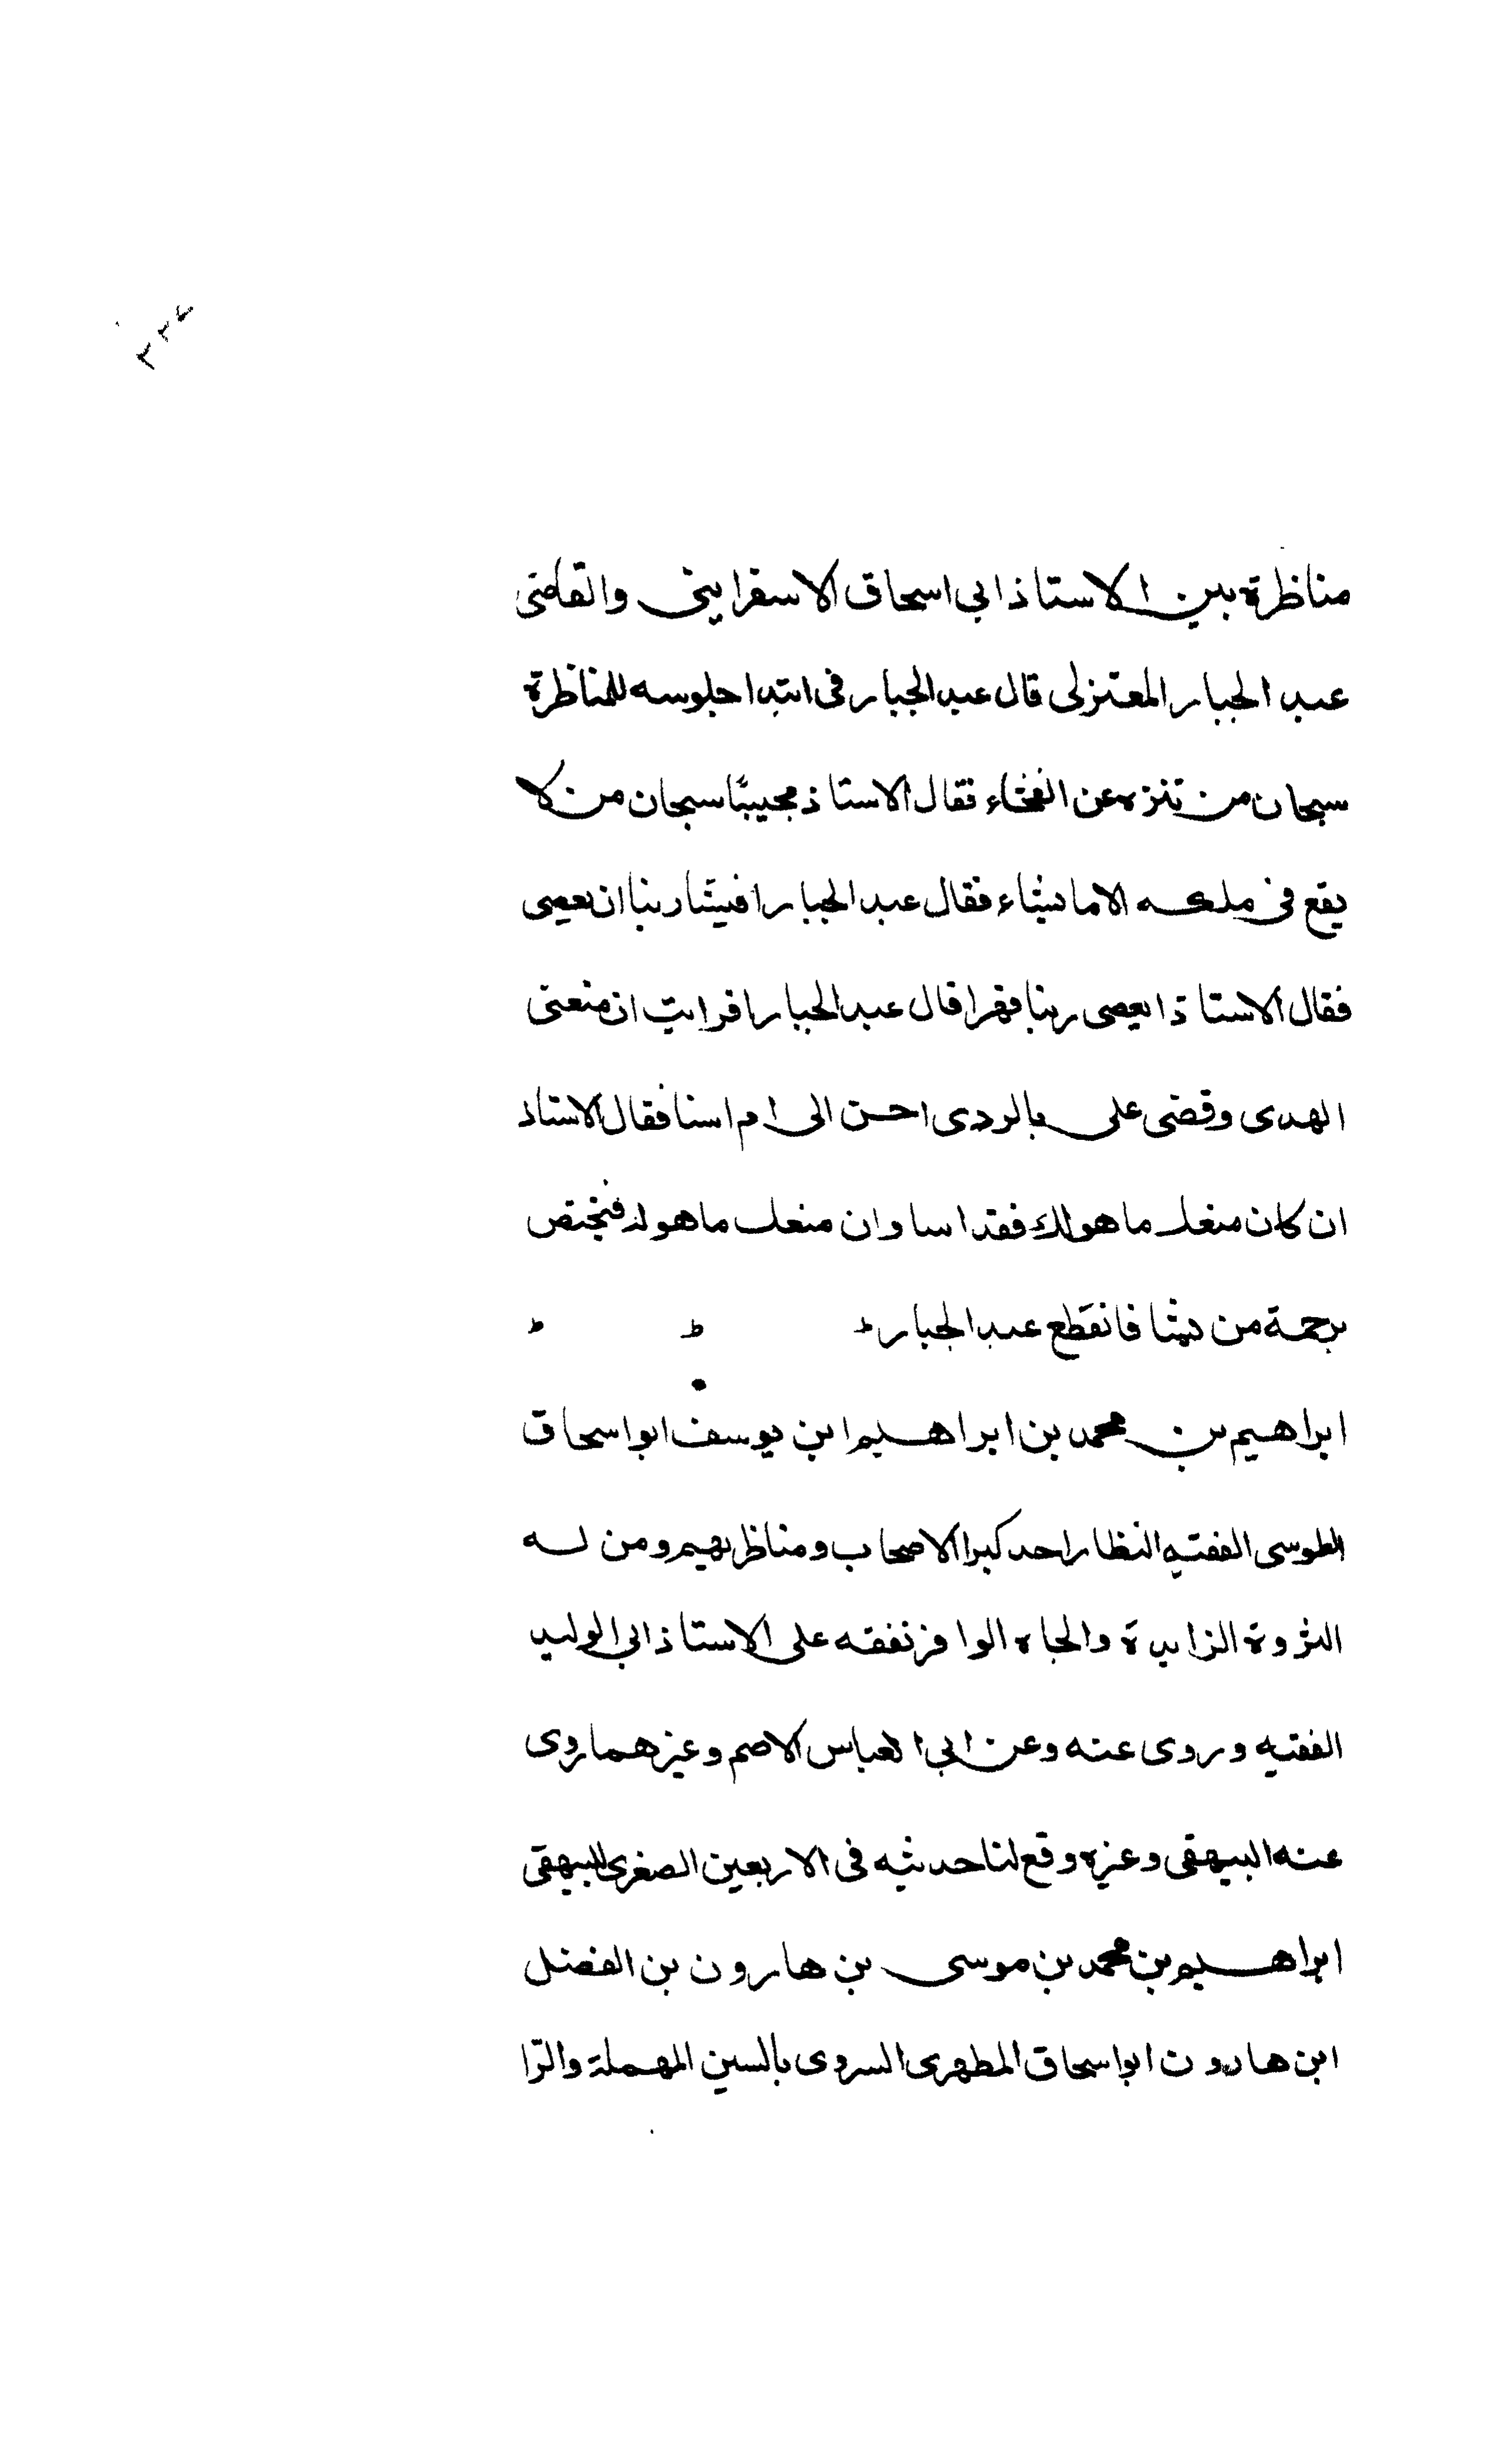 مناظرة بين الاستاذ ابي اسحاق الاسفرايني والقاضي
عبد الجبار المعتزلى قال عبد الجبار فى ابتدا جلوسه للمناظرة
سبحان من تنزه عن الفحشاء فقال الاستاذ مجيبًا سبحان من لا
يقع فى ملكه الا ما يشاء فقال عبد الجبار افيشا ربنا ان يعصى
فقال الاستاذ ايعصى ربنا قهرا قال عبد الجبار افرايت ان منعنى
الهدى وقضى على بالردى احسن الى ام اسا فقال الاستاذ
ان كان منعك ما هو لك فقد اسا وان منعك ما هو له فيختص
برحمة من يشا فانقطع عبد الجبار
ابراهيم بن محمد بن ابراهيم ابن يوسف ابو اسحاق
الطوسى الفقيه النظار احد كبرا الاصحاب ومناظريهم ومن له
الثروة الزايدة والجاه الوافر تفقه على الاستاذ ابي الوليد
الفقيه وروى عنه وعن ابي العباس الاصم وغيرهما روى
عنه البيهقى وغيره وقع لنا حديثه فى الاربعين الصغرى للبيهقى
ابراهيم بن محمد بن موسى بن هارون بن الفضل
ابن هارون ابو اسحاق المطهرى السروى بالسين المهملة والرّا